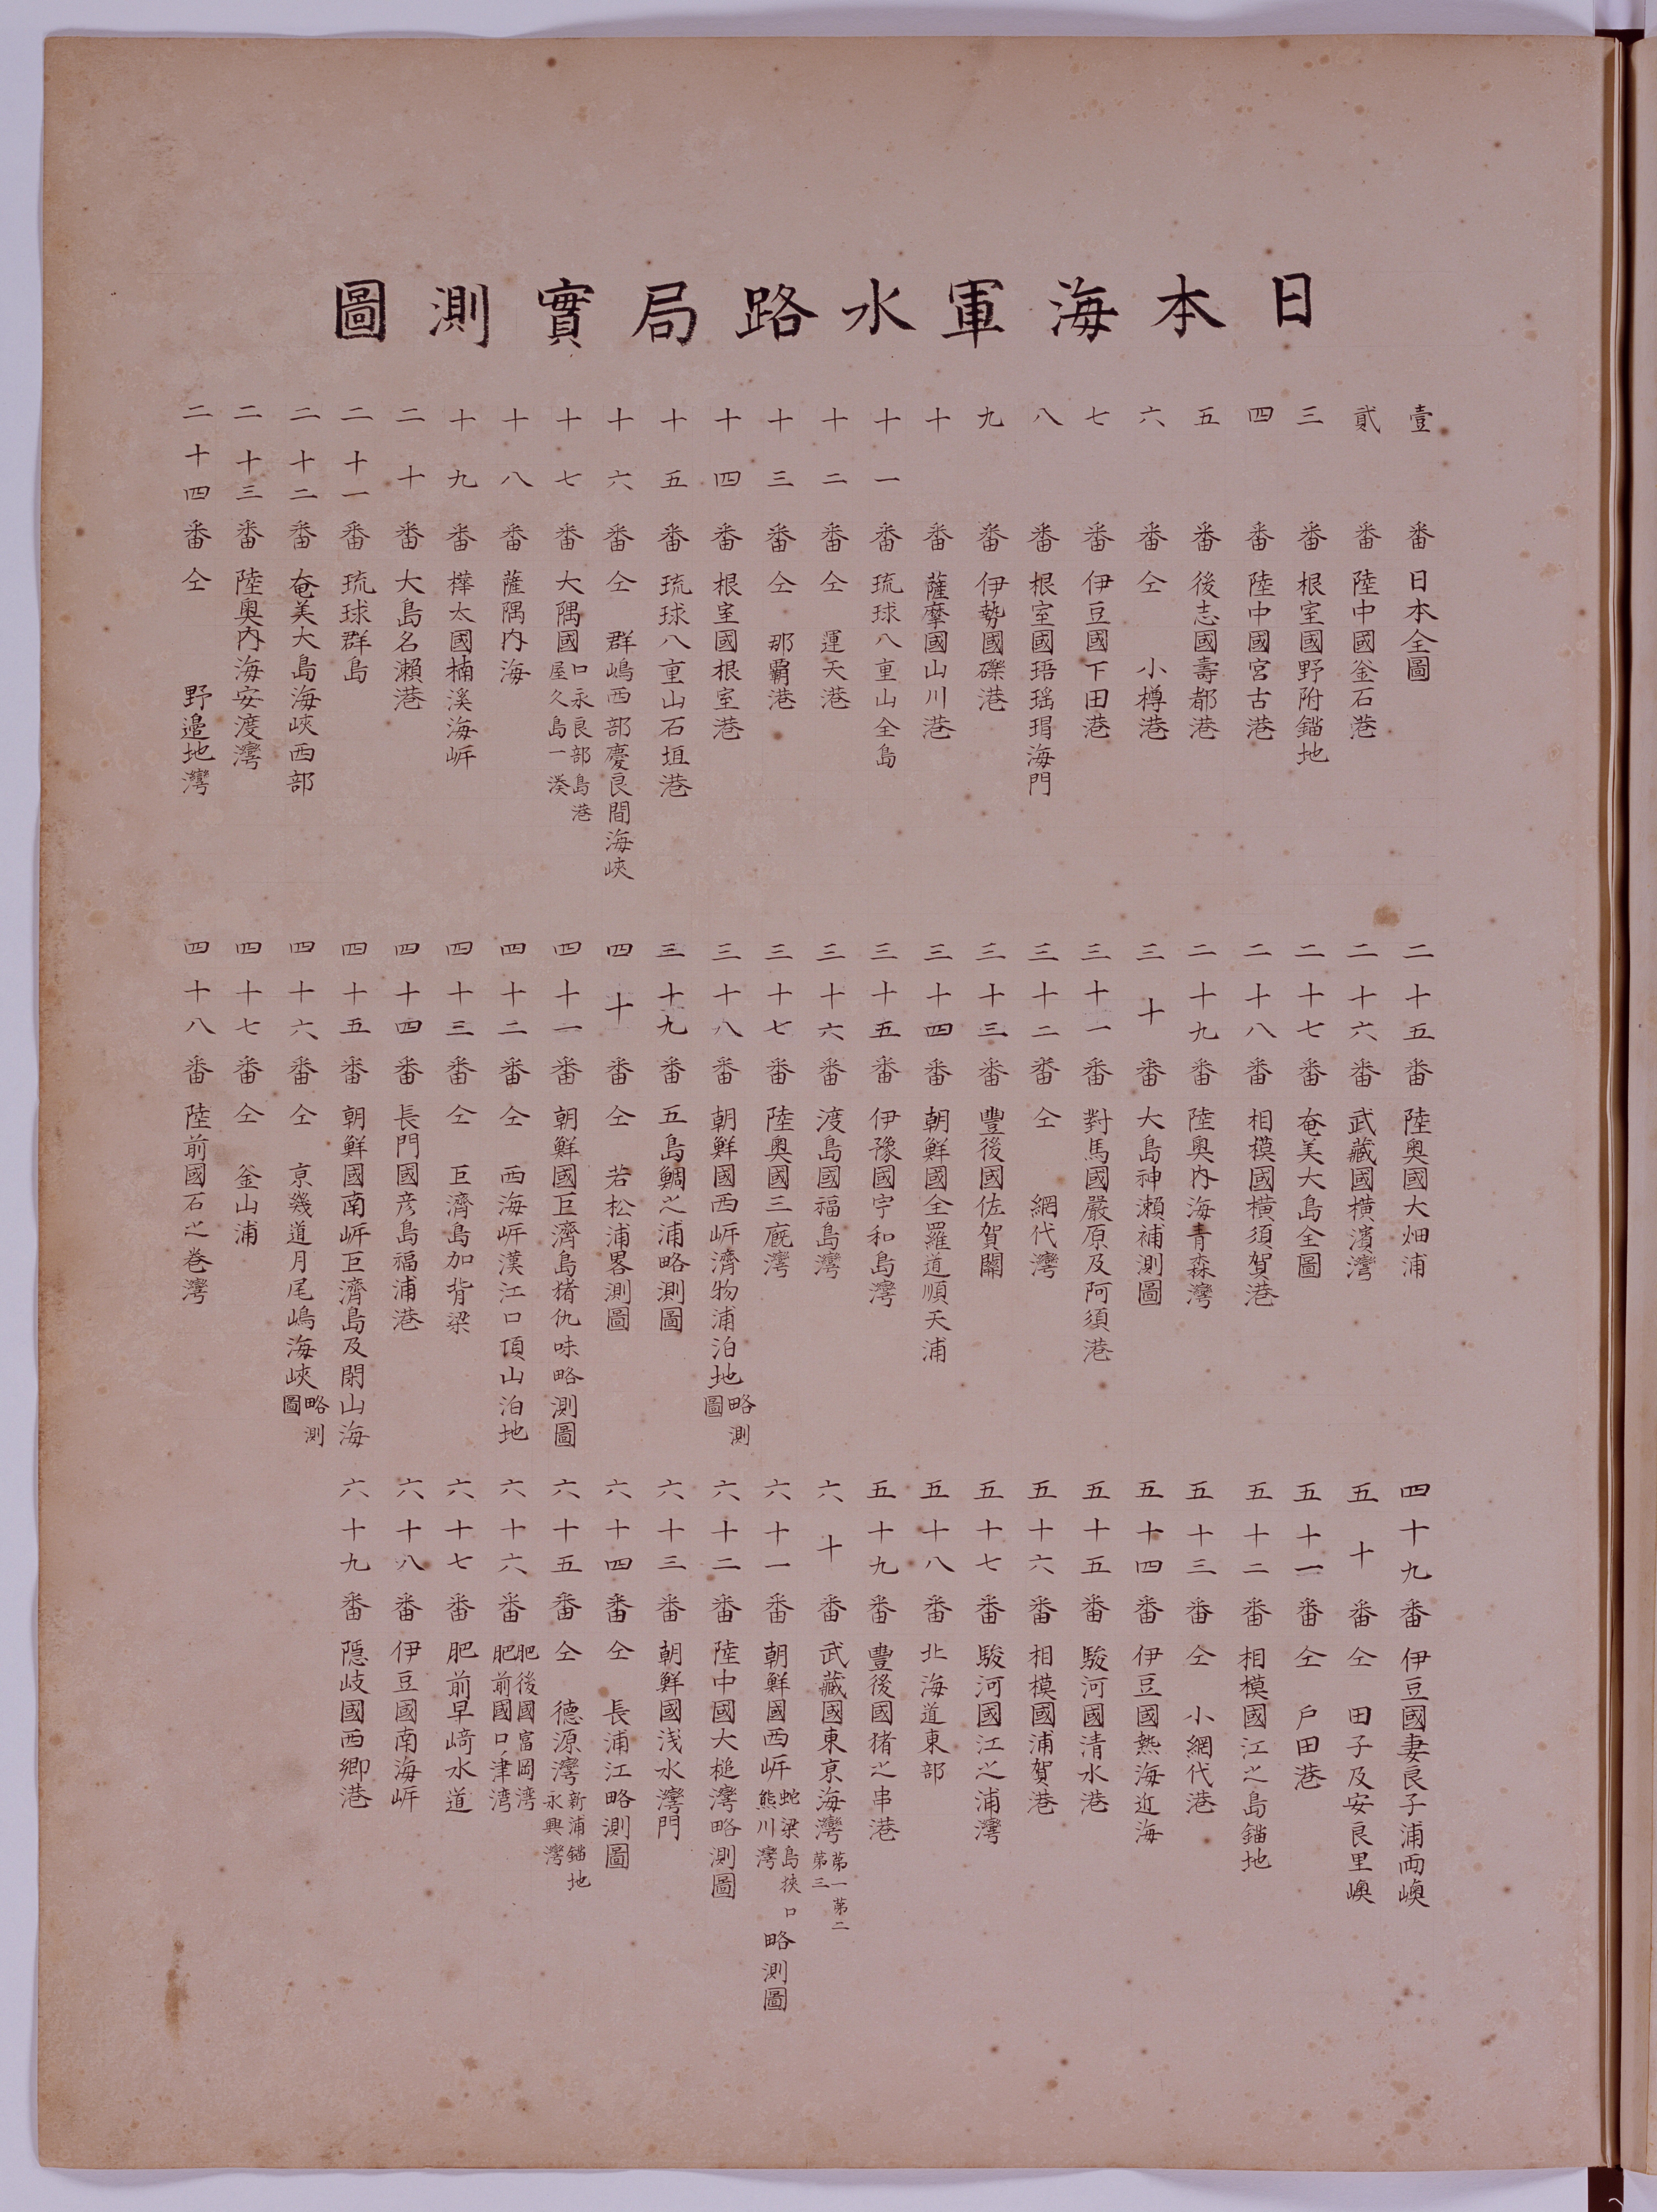 日本海軍水路局實測圖
壹番 日本全圖
貳番 陸中國釜石港
三番 根室國野附錨地
四番 陸中國宮古港
五番 後志國壽都港
六番 仝 小樽港
七番 伊豆國下田港
八番 根室國珸瑤瑁海門
九番 伊勢國礫港
十番 薩摩國山川港
十一番 琉球八重山全島
十二番 仝 運天港
十三番 仝 那覇港
十四番 根室國根室港
十五番 琉球八重山石垣港
十六番 仝 群嶋西部慶良間海峽
十七番 大隅國 口永良部島港 屋久島一湊
十八番 薩隅内海
十九番 樺太國楠溪海岸
二十番 大島名瀬港
二十一番 琉球群島
二十二番 奄美大島海峽西部
二十三番 陸奥内海安渡灣
二十四番 仝 野邉地灣
二十五番 陸奥國大畑浦
二十六番 武藏國横濱灣
二十七番 奄美大島全圖
二十八番 相模國横須賀港
二十九番 陸奥内海青森灣
三十番 大島神瀬補測圖
三十一番 對馬國嚴原及阿須港
三十二番 仝 網代灣
三十三番 豐後國佐賀關
三十四番 朝鮮國全羅道順天浦
三十五番 伊豫國宇和島灣
三十六番 渡島國福島灣
三十七番 陸奥國三厩灣
三十八番 朝鮮國西岸濟物浦泊地略測圖
三十九番 五島鯛之浦略測圖
四十番 仝 若松浦畧測圖
四十一番 朝鮮國巨濟島猪仇味略測圖
四十二番 仝 西海岸漢江口頂山泊地
四十三番 仝 巨濟島加背梁
四十四番 長門國彦島福浦港
四十五番 朝鮮國南岸巨濟島及閑山海
四十六番 仝 京畿道月尾嶋海峽略測圖
四十七番 仝 釜山浦
四十八番 陸前國石之巻灣
四十九番 伊豆國妻良子浦両嶴
五十番 仝 田子及安良里嶴
五十一番 仝 戸田港
五十二番 相模國江之島錨地
五十三番 仝 小網代港
五十四番 伊豆國熱海近海
五十五番 駿河國清水港
五十六番 相模國浦賀港
五十七番 駿河國江之浦灣
五十八番 北海道東部
五十九番 豐後國猪之串港
六十番 武藏國東京海灣 第一第二第三
六十一番 朝鮮國西岸 蛇梁島挾口 熊川灣 略測圖
六十二番 陸中國大槌灣略測圖
六十三番 朝鮮國浅水灣門
六十四番 仝 長浦江略測圖
六十五番 仝 德源灣 新浦錨地 永興灣
六十六番 肥後國富岡湾 肥前國口ノ津湾
六十七番 肥前早﨑水道
六十八番 伊豆國南海岸
六十九番 隠岐國西郷港